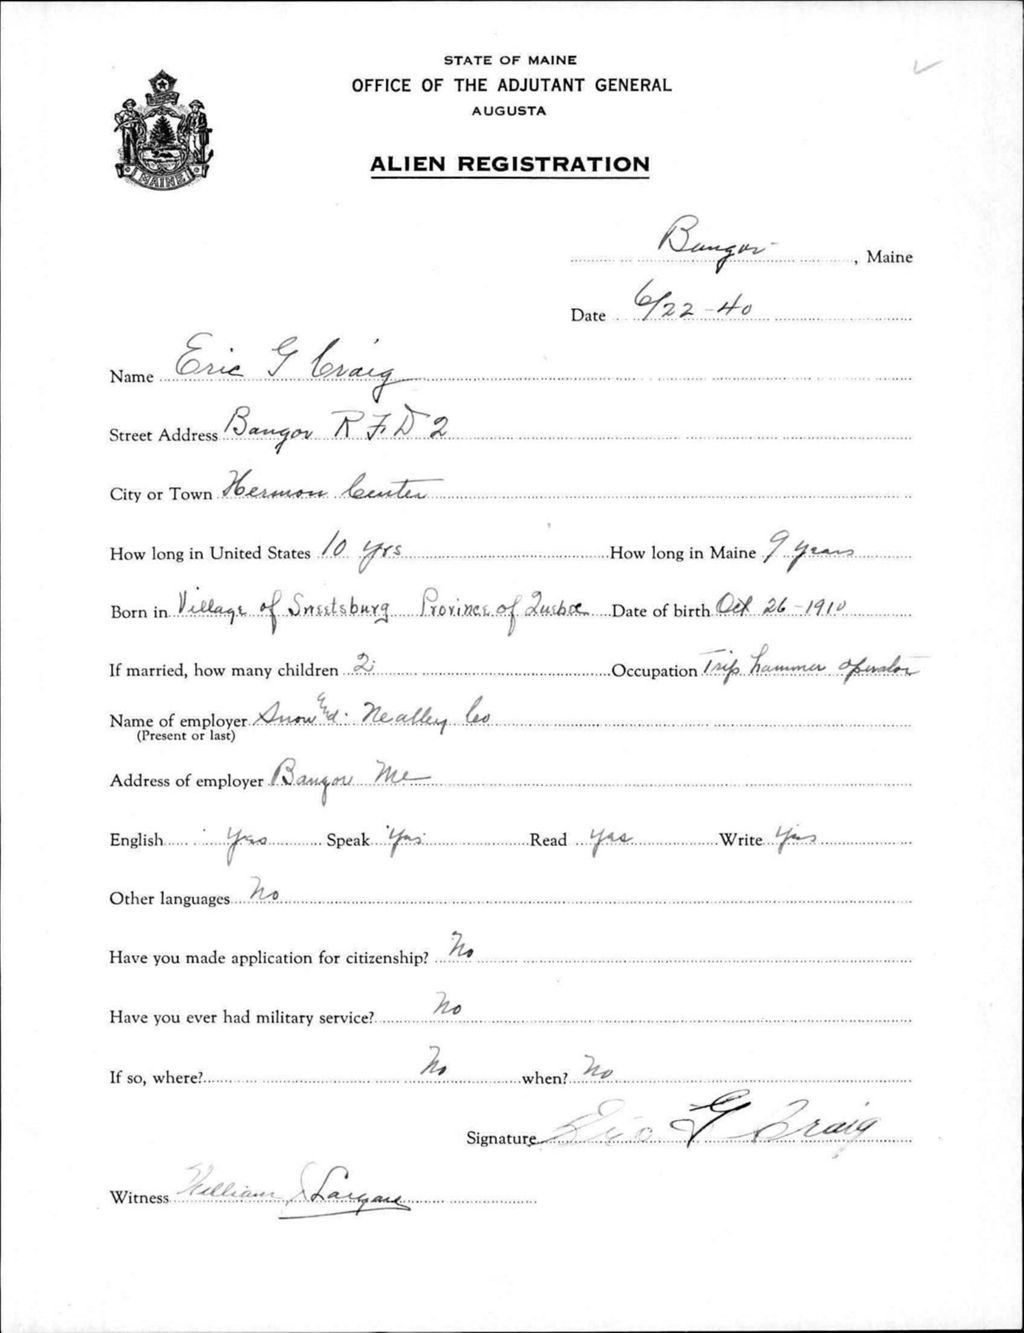 STATE OF MAINE
OFFICE OF THE ADJUTANT GENERAL
AUGUSTA
ALIEN REGISTRATION
MAINE
Bangor, Maine
Date 6/22-40
Name Eric G Craig
Street Address Bangor R F D 2
City or Town Hermon Center
How long in United States 10 yrs How long in Maine 9 years
Born in Village of Sweetsburg Province of Quebec Date of birth Oct 26-1910
If married, how many children 2 Occupation Trip hammer operator
Name of employer Snow and Nealley Co
(Present or last)
Address of employer Bangor Me
English Yes Speak Yes Read Yes Write Yes
Other languages No
Have you made application for citizenship? No
Have you ever had military service? No
If so, where? No when? No
Signature Eric G Craig
Witness William